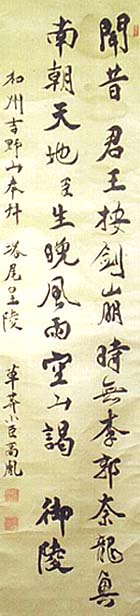 聞昔君王按劍崩時無李郭奈龍興
南朝天地臣生晚風雨空山謁御陵
和州吉野山奉拜塔尾皇陵
草莽小臣高凰